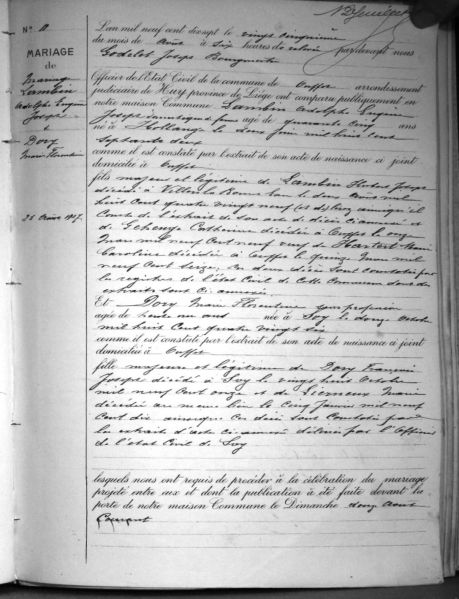 N° 11
MARIAGE
de
Lambin
Adolphe Eugène
Joseph
&
Dory
Marie Florentine
25 Août 1917.
L'an mil neuf cent dix sept le vingt cinquième
du mois de Août à six heures de relevée par devant nous
Godelet Joseph Bourgmestre
Officier de l'Etat Civil de la commune de Ouffet arrondissement
judiciaire de Huy province de Liége ont comparu publiquement en
notre maison Commune Lambin Adolphe Eugène
Joseph domestique de ferme agé de quarante cinq ans
né à Hollange le deux juin mil huit cent
septante deux
comme il est constaté par l'extrait de son acte de naissance ci joint
domicilié à Ouffet
fils majeur et légitime de Lambin Hubert Joseph
décédé à Villers la Bonne Eau le deux mil
huit cent quatre vingt neuf
l'extrait de son acte de décès ci annexé et
de Catherine décédée à Ouffet le onze
mai mil neuf cent neuf veuf de Marie
Caroline décédée à Ouffet le quinze mai mil
neuf cent seize. Ces deux décès sont constatés par
les registres de l'état Civil de cette Commune dont des
extraits sont ci annexés.
Et Dory Marie Florentine sans profession
agée de trente un ans née à Soy le douze Octobre
mil huit Cent quatre vingt six
comme il est constaté par l'extrait de son acte de naissance ci joint
domiciliée à Ouffet
fille majeure et légitime de Dory François
Joseph décédé à Soy le vingt huit Octobre
mil neuf cent onze et de Marie
décédée au même lieu le cinq mil neuf
Cent dix Ces décès sont Constatés par
les extraits d'acte ci annexés délivrés par l'Officier
de l'état Civil de Soy
lesquels nous ont requis de procéder à la célébration du mariage
projeté entre eux et dont la publication à été faite devant la
porte de notre maison Commune le Dimanche douze Août
Courant